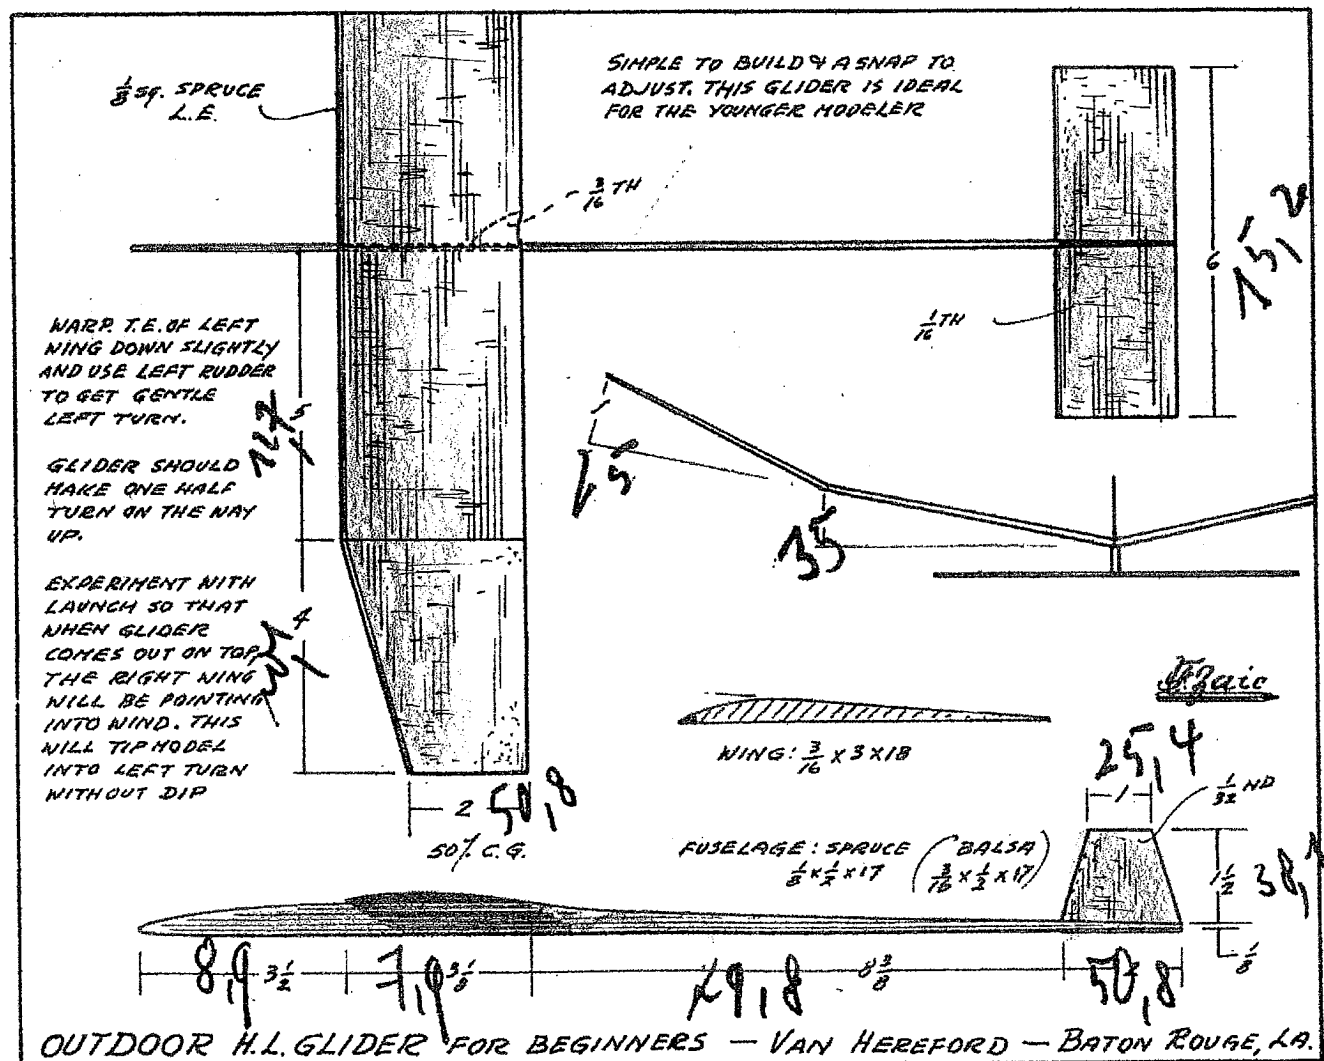 1/8 SQ. SPRUCE
L.E.
SIMPLE TO BUILD & A SNAP TO
ADJUST. THIS GLIDER IS IDEAL
FOR THE YOUNGER MODELER
3/16 TH
6
15,2
1/16 TH
WARP. T.E. OF LEFT
WING DOWN SLIGHTLY
AND USE LEFT RUDDER
TO GET GENTLE
LEFT TURN.
5
GLIDER SHOULD
MAKE ONE HALF
TURN ON THE WAY
UP.
35
EXPERIMENT WITH
LAUNCH SO THAT
WHEN GLIDER
COMES OUT ON TOP,
THE RIGHT WING
WILL BE POINTING
INTO WIND. THIS
WILL TIP MODEL
INTO LEFT TURN
WITHOUT DIP
4
F. Zaic
WING: 3/16 x 3 x 18
25,4
1
1/32 ND
2
50,8
50% C.G.
FUSELAGE: SPRUCE (BALSA)
1/8 x 1/2 x 17 (3/16 x 1/2 x 17)
1 1/2
1/8
8,9 3 1/2
3 1/8
8 3/8
50,8
OUTDOOR H.L. GLIDER FOR BEGINNERS — VAN HEREFORD — BATON ROUGE, LA.